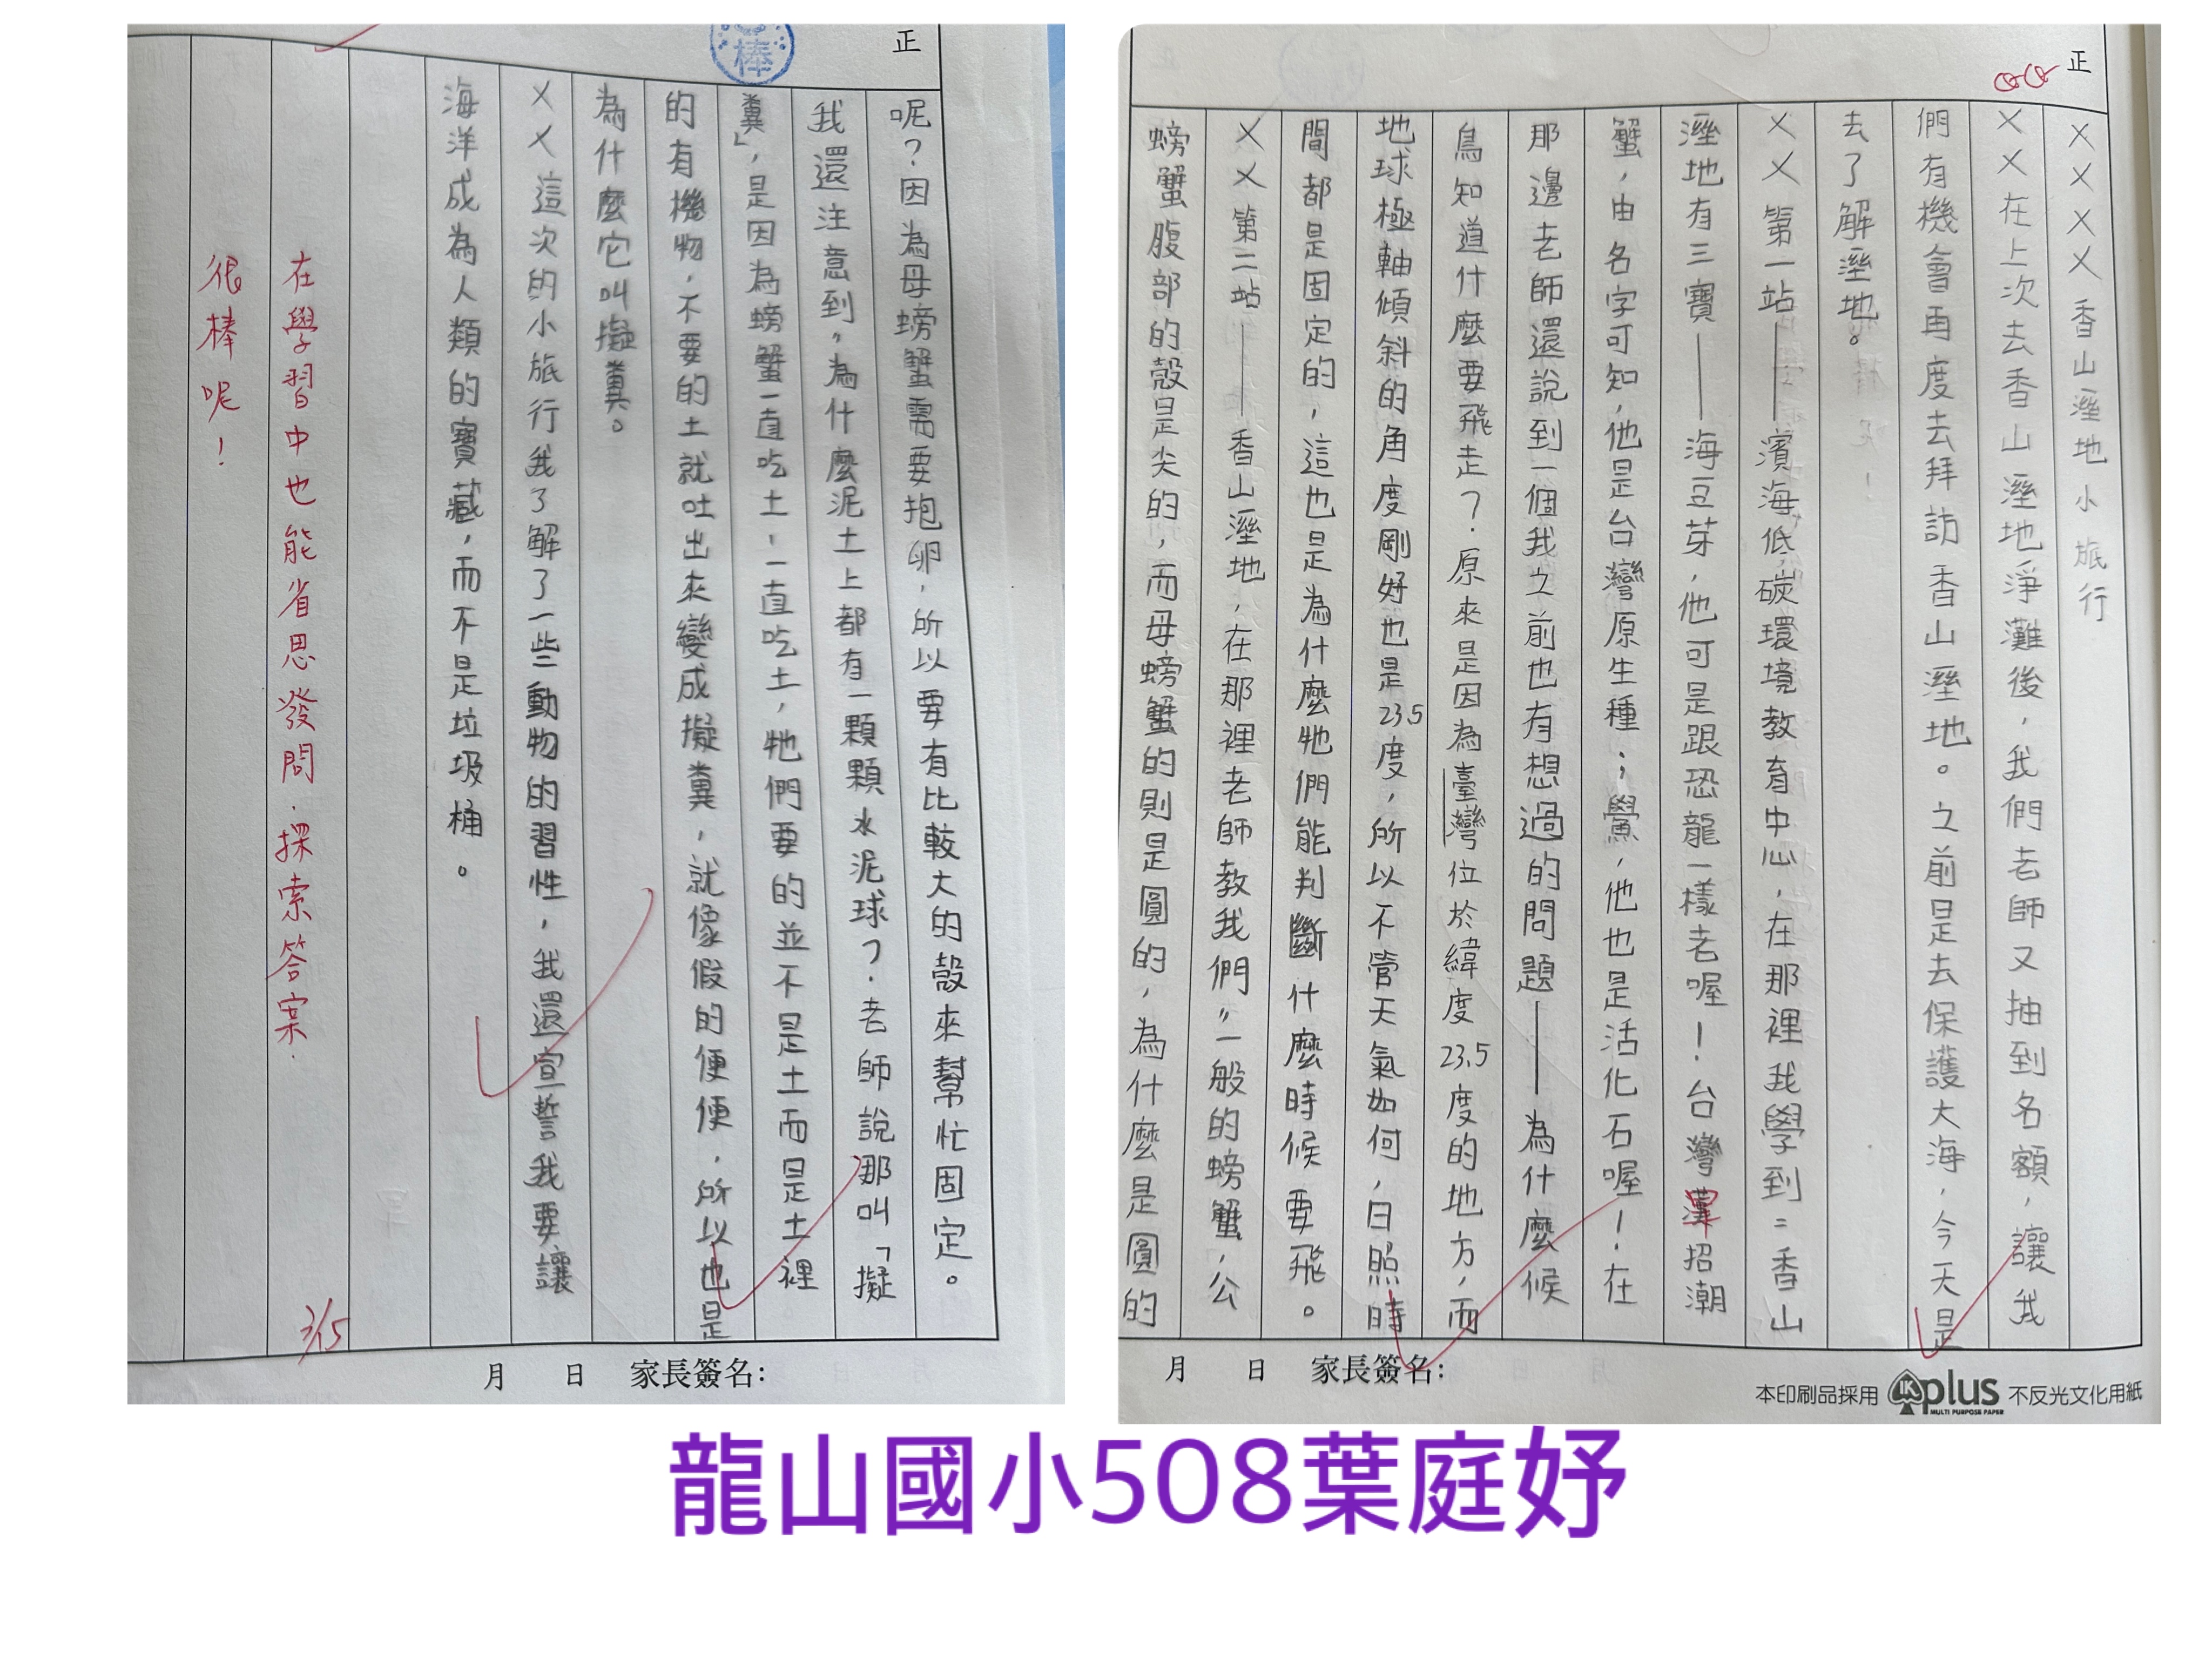 正
××××香山溼地小旅行
××在上次去香山溼地淨灘後，我們老師又抽到名額，讓我
們有機會再度去拜訪香山溼地。之前是去保護大海，今天是
去了解溼地。
××第一站——濱海低碳環境教育中心，在那裡我學到：香山
溼地有三寶——海豆芽，他可是跟恐龍一樣老喔！台灣招潮
蟹，由名字可知，他是台灣原生種；鱟，他也是活化石喔！在
那邊老師還說到一個我之前也有想過的問題——為什麼候
鳥知道什麼要飛走？原來是因為臺灣位於緯度23.5度的地方，而
地球極軸傾斜的角度剛好也是23.5度，所以不管天氣如何，日照時
間都是固定的，這也是為什麼牠們能判斷什麼時候要飛。
××第二站——香山溼地，在那裡老師教我們，一般的螃蟹，公
螃蟹腹部的殼是尖的，而母螃蟹的則是圓的，為什麼是圓的
月 日 家長簽名：
本印刷品採用 plus MULTI PURPOSE PAPER 不反光文化用紙
正
棒
呢？因為母螃蟹需要抱卵，所以要有比較大的殼來幫忙固定。
我還注意到，為什麼泥土上都有一顆顆水泥球？老師說那叫「擬
糞」，是因為螃蟹一直吃土、一直吃土，牠們要的並不是土而是土裡
的有機物，不要的土就吐出來變成擬糞，就像假的便便，所以也是
為什麼它叫擬糞。
××這次的小旅行我了解了一些動物的習性，我還宣誓我要讓
海洋成為人類的寶藏，而不是垃圾桶。
在學習中也能省思發問．探索答案．
很棒呢！
3/15
月 日 家長簽名：
龍山國小508葉庭妤